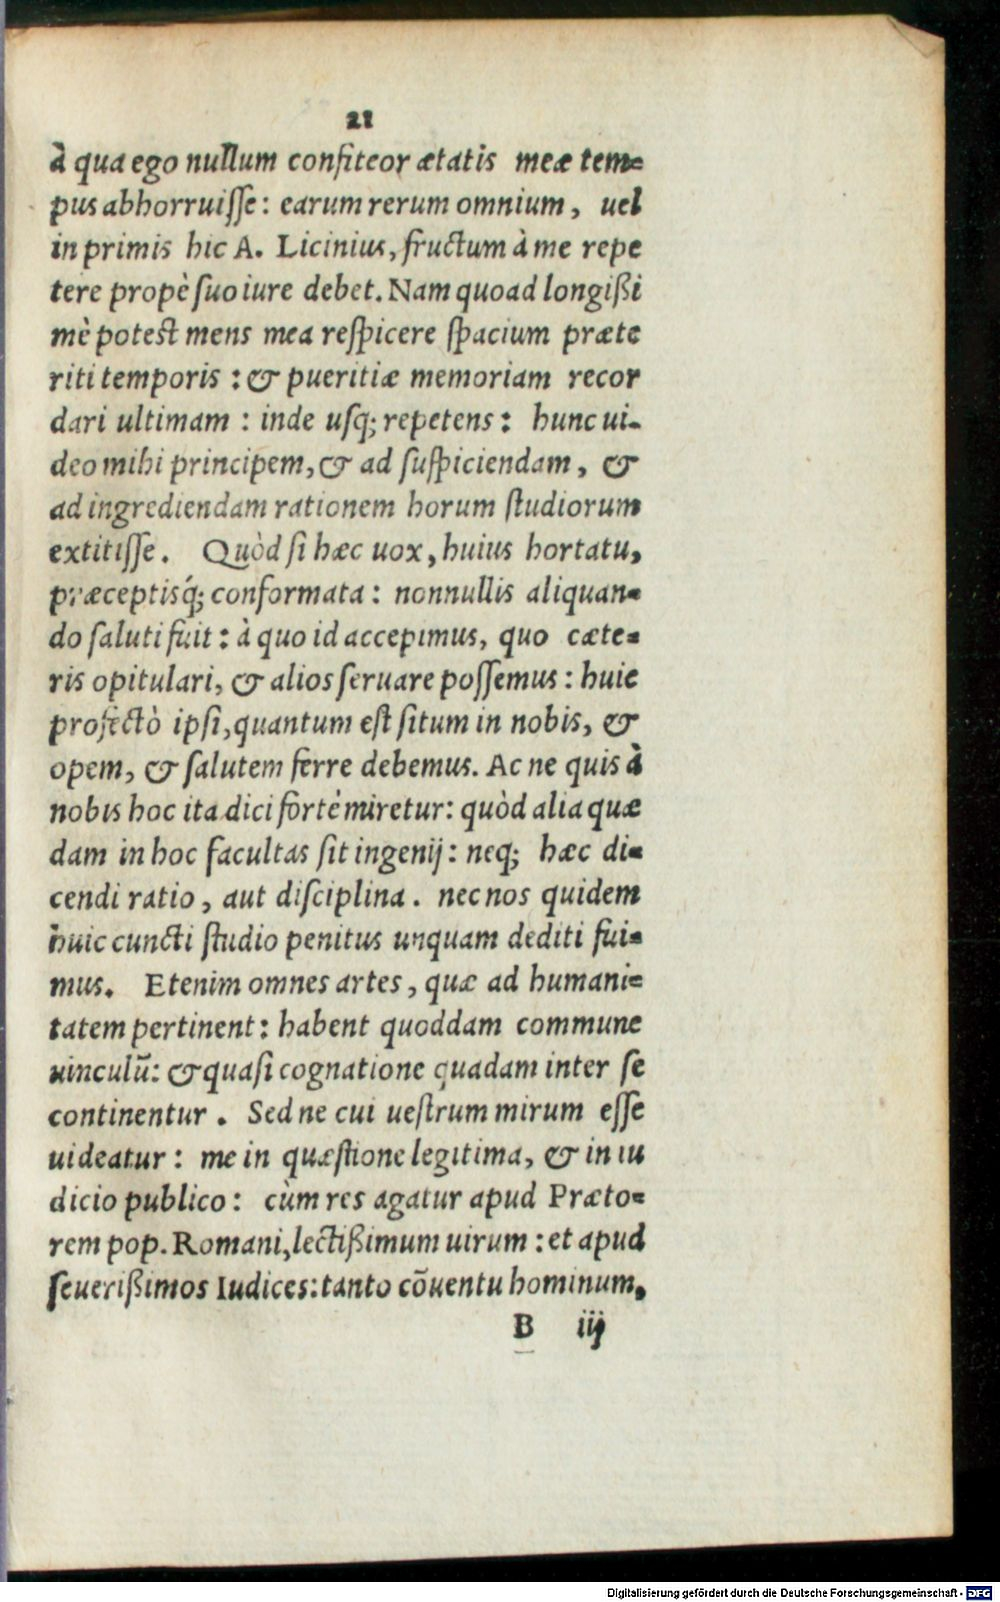 21
à qua ego nullum confiteor ætatis meæ tem=
pus abhorruiſſe: earum rerum omnium, uel
in primis hic A. Licinius, fructum à me repe
tere propè ſuo iure debet. Nam quoad longißi
mè poteſt mens mea reſpicere ſpacium præte
riti temporis : & pueritiæ memoriam recor
dari ultimam : inde uſq; repetens : hunc ui-
deo mihi principem, & ad ſuſpiciendam, &
ad ingrediendam rationem horum ſtudiorum
extitiſſe. Quòd ſi hæc uox, huius hortatu,
præceptisq́; conformata : nonnullis aliquan=
do ſaluti fuit : à quo id accepimus, quo cæte=
ris opitulari, & alios ſeruare poſſemus : huic
profectò ipſi, quantum eſt ſitum in nobis, &
opem, & ſalutem ferre debemus. Ac ne quis à
nobis hoc ita dici fortè miretur: quòd alia quæ
dam in hoc facultas ſit ingenij : neq; hæc di=
cendi ratio, aut diſciplina. nec nos quidem
huic cuncti ſtudio penitus unquam dediti fui=
mus. Etenim omnes artes, quæ ad humani=
tatem pertinent : habent quoddam commune
uinculũ: & quaſi cognatione quadam inter ſe
continentur. Sed ne cui ueſtrum mirum eſſe
uideatur : me in quæſtione legitima, & in iu
dicio publico : cùm res agatur apud Præto=
rem pop. Romani, lectißimum uirum : et apud
ſeuerißimos Iudices: tanto cõuentu hominum,
B iij
Digitalisierung gefördert durch die Deutsche Forschungsgemeinschaft - DFG